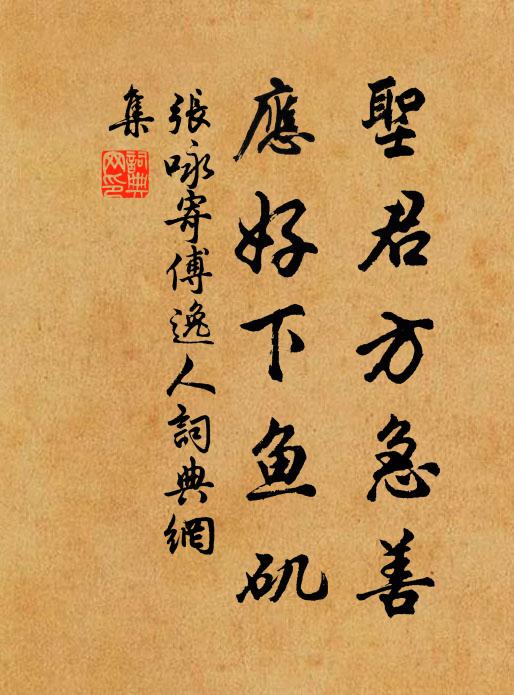 聖君方急善
應好下鱼矶
張咏寄傅逸人詞典網
集
詞典
网印